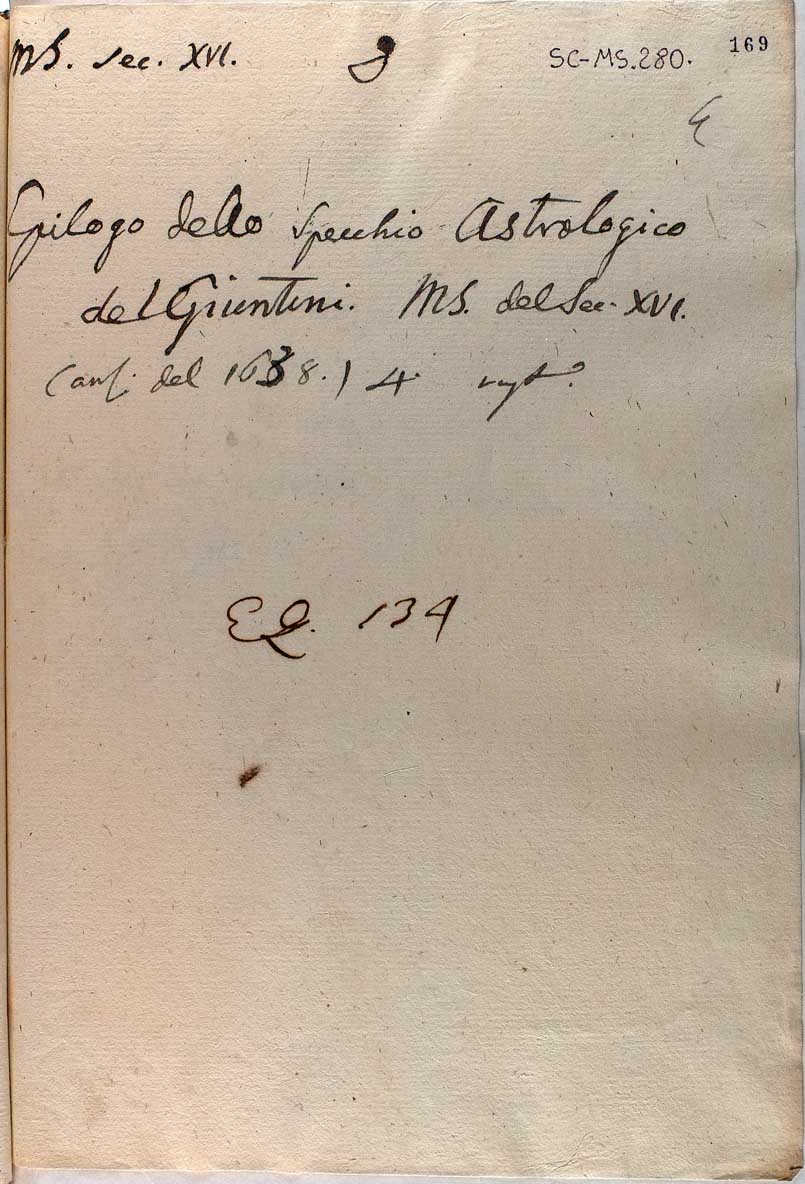 MS. sec. XVI. SC-MS.280. 169
Epilogo dello Specchio Astrologico
del Giuntini. MS. del Sec. XVI.
( del 1638.) 4.
134